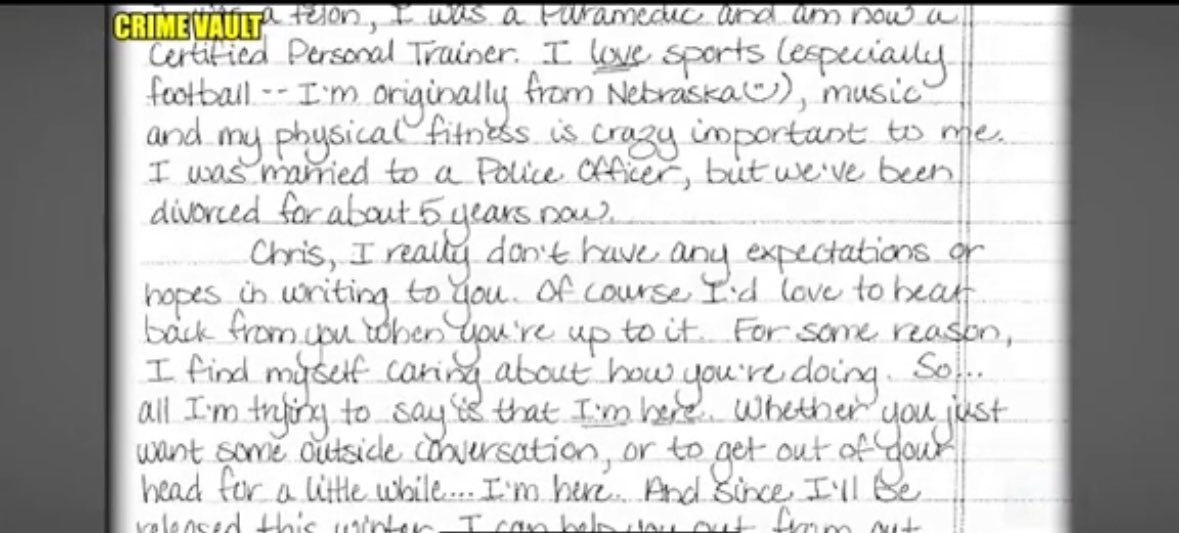 CRIME VAULT
a felon, I was a Paramedic and am now a
Certified Personal Trainer. I love sports (especially
football -- I'm originally from Nebraska ☺), music
and my physical fitness is crazy important to me.
I was married to a Police Officer, but we've been
divorced for about 5 years now.
Chris, I really don't have any expectations or
hopes in writing to you. Of course I'd love to hear
back from you when you're up to it. For some reason,
I find myself caring about how you're doing. So...
all I'm trying to say is that I'm here. Whether you just
want some outside conversation, or to get out of your
head for a little while.... I'm here. And since I'll be
released this winter, I can help you out from out